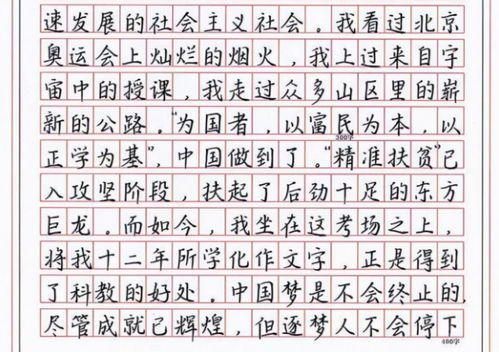 速发展的社会主义社会。我看过北京
奥运会上灿烂的烟火，我上过来自宇
宙中的授课，我走过众多山区里的崭
新的公路。“为国者，以富民为本，以
300字
正学为基”，中国做到了。“精准扶贫”已
入攻坚阶段，扶起了后劲十足的东方
巨龙。而如今，我坐在这考场之上，
将我十二年所学化作文字，正是得到
了科教的好处。中国梦是不会终止的，
尽管成就已辉煌，但逐梦人不会停下
400字